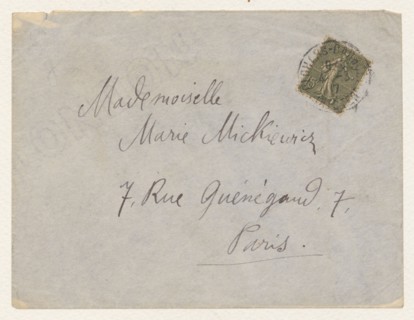 Mademoiselle
Marie Mickiewicz
7, Rue Guénégaud, 7,
Paris.